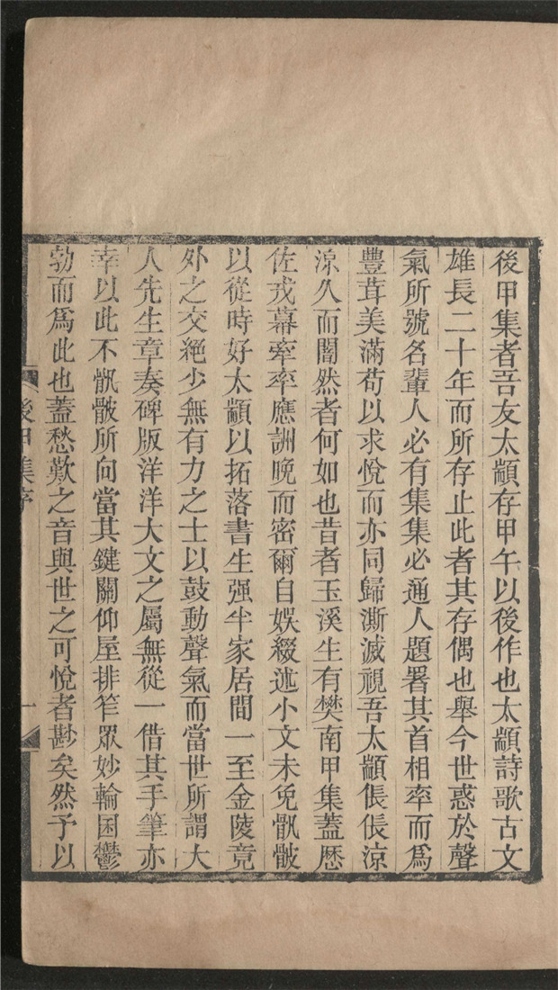 後甲集者吾友太顓存甲午以後作也太顓詩歌古文
雄長二十年而所存止此者其存偶也舉今世惑於聲
氣所號名輩人必有集集必通人題署其首相率而爲
豐茸美滿苟以求悅而亦同歸澌滅視吾太顓倀倀凉
凉久而闇然者何如也昔者玉溪生有樊南甲集蓋歷
佐戎幕牽率應詶晚而密爾自娛綴述小文未免骩骳
以從時好太顓以拓落書生强半家居間一至金陵竟
外之交絶少無有力之士以鼓動聲氣而當世所謂大
人先生章奏碑版洋洋大文之屬無從一借其手筆亦
幸以此不骩骳所向當其鍵關仰屋排笮眾妙輪囷鬱
勃而爲此也蓋愁歎之音與世之可悅者尠矣然予以
後甲集序
一